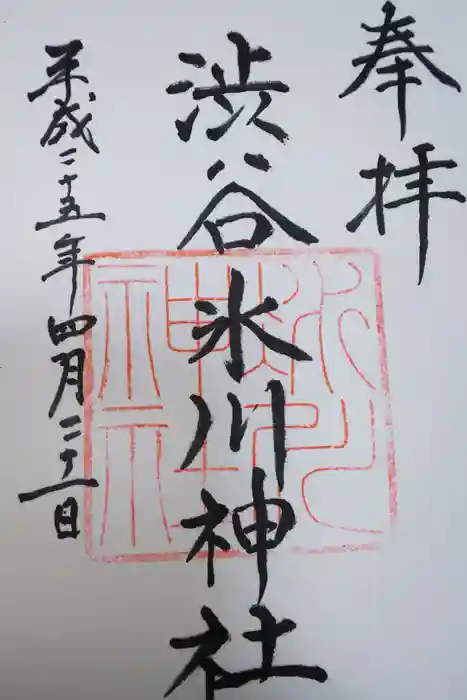 奉拝
渋谷氷川神社
平成二十五年四月二十一日